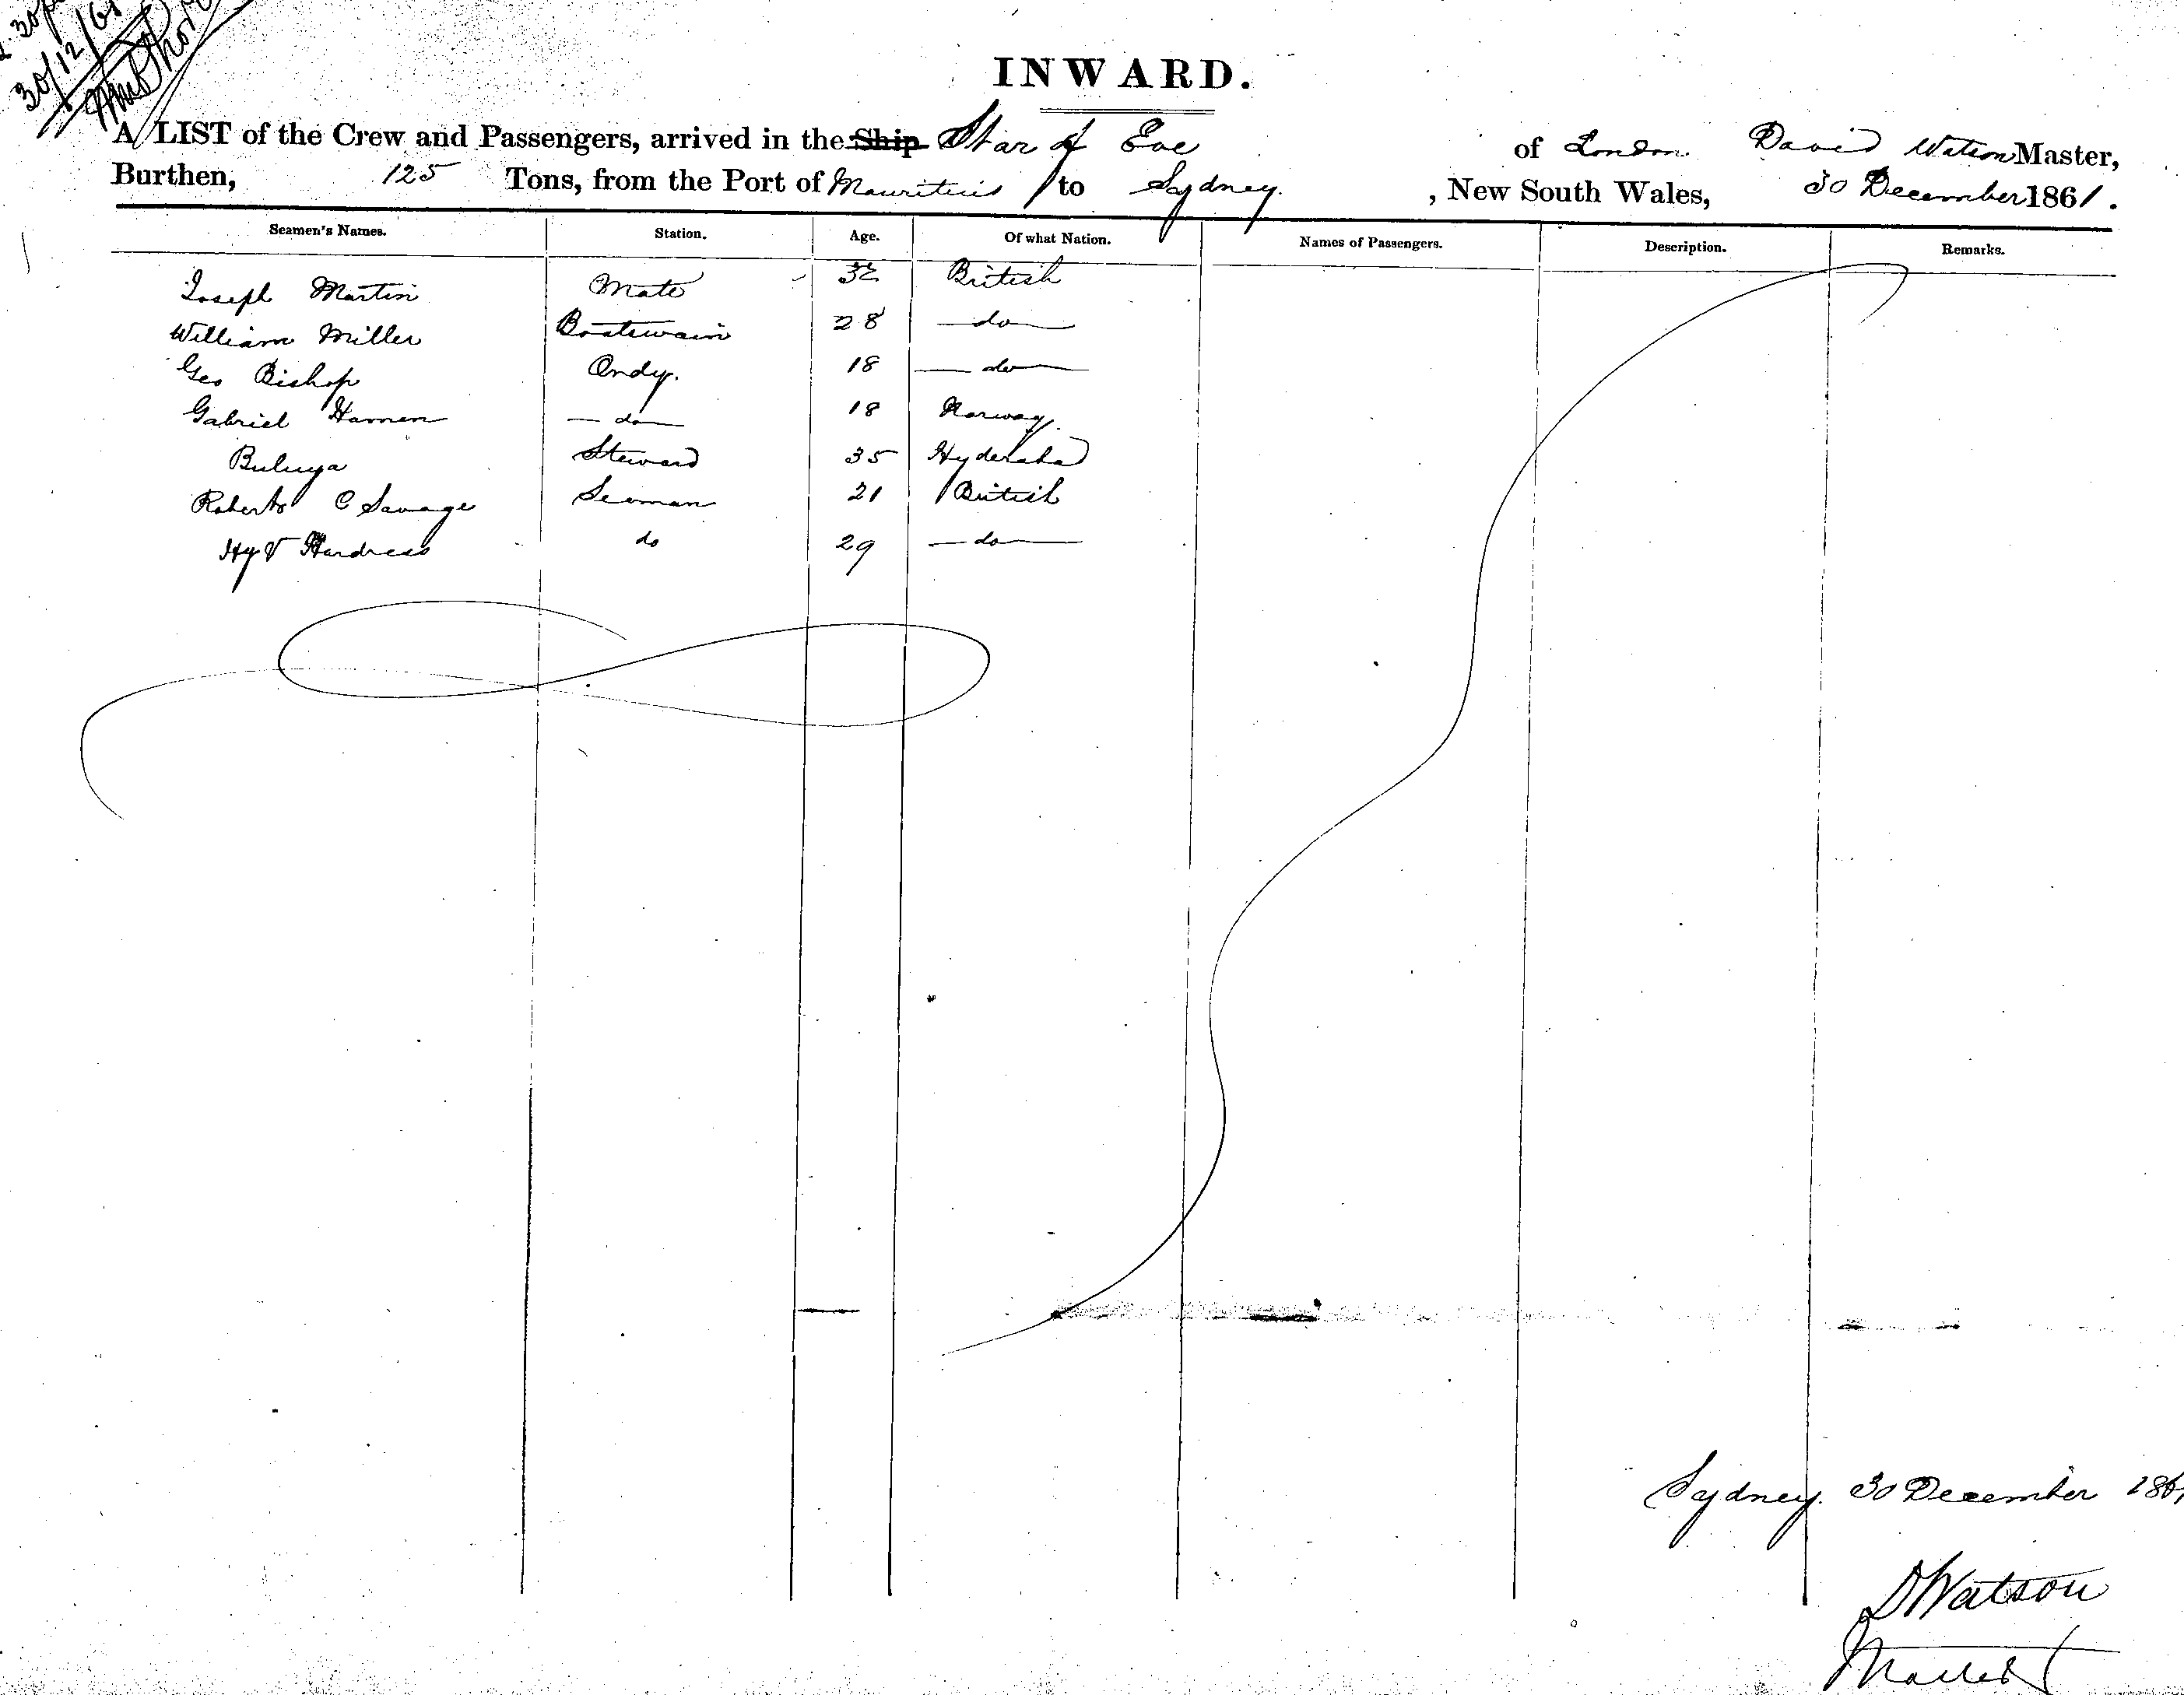 30/12/61
INWARD.
A LIST of the Crew and Passengers, arrived in the Ship Star of Eve of London David Watson Master,
Burthen, 125 Tons, from the Port of Mauritius to Sydney , New South Wales, 30 December 1861.
Seamen's Names. Station. Age. Of what Nation. Names of Passengers. Description. Remarks.
Joseph Martin Mate 32 British
William Miller Boatswain 28 do
Geo Bishop Ordy. 18 do
Gabriel Hansen do 18 Norway
Buluya Steward 35 Hyderabad
Roberts C Savage Seaman 21 British
Hy V Hardress do 29 do
Sydney. 30 December 1861
D Watson
Master